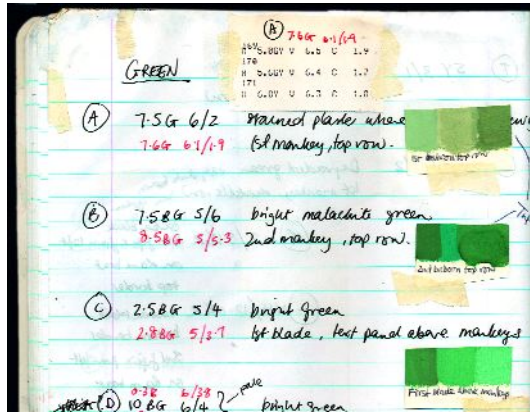 A 7.6G 6.1/1.9
169 5.8GY V 6.5 C 1.9
170
H 5.6GY V 6.4 C 1.7
171
H 6.0Y V 6.3 C 1.8
GREEN
A 7.5G 6/2 stained plaster where
7.6G 6.1/1.9 1st monkey, top row.
1st baboon top row
B 7.5BG 5/6 bright malachite green
8.5BG 5/5.3 2nd monkey, top row.
2nd baboon top row
C 2.5BG 5/4 bright green
2.8BG 5/3.7 1st blade, text panel above monkeys
First blade above monkey
0.3B 6/3.8 pale
D 10BG 6/4 bright green